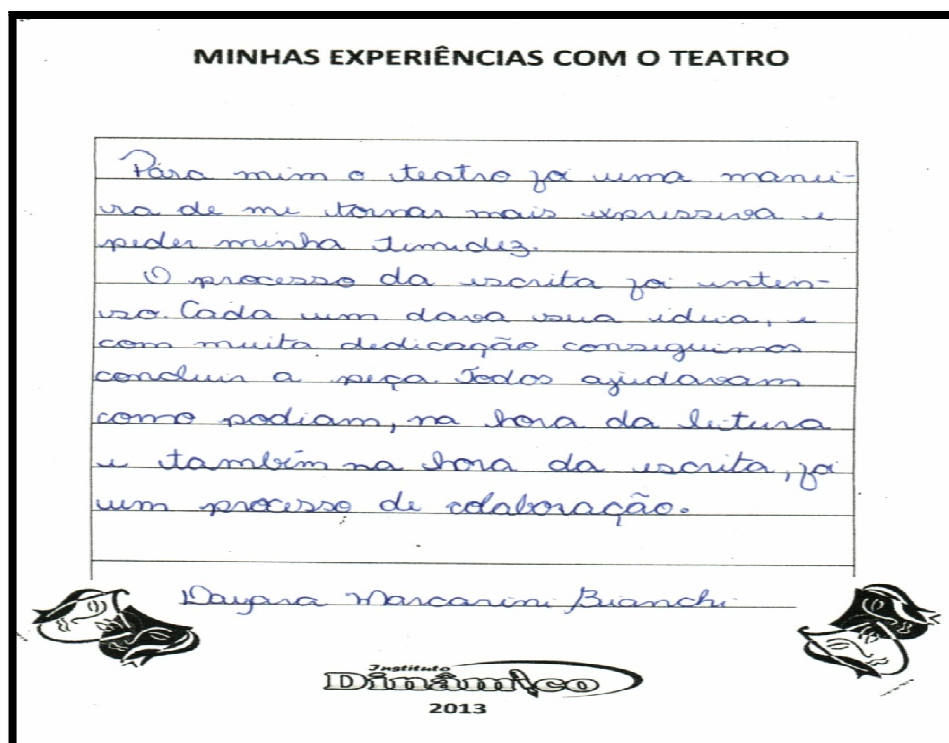 MINHAS EXPERIÊNCIAS COM O TEATRO
Para mim o teatro foi uma manei-
ra de me tornar mais expressiva e
peder minha timidez.
O processo da escrita foi inten-
so. Cada um dava sua ideia, e
com muita dedicação conseguimos
concluir a peça. Todos ajudavam
como podiam, na hora da leitura
e também na hora da escrita, foi
um processo de colaboração.
Dayara Marcarini Bianchi
Instituto
Dinâmico
2013